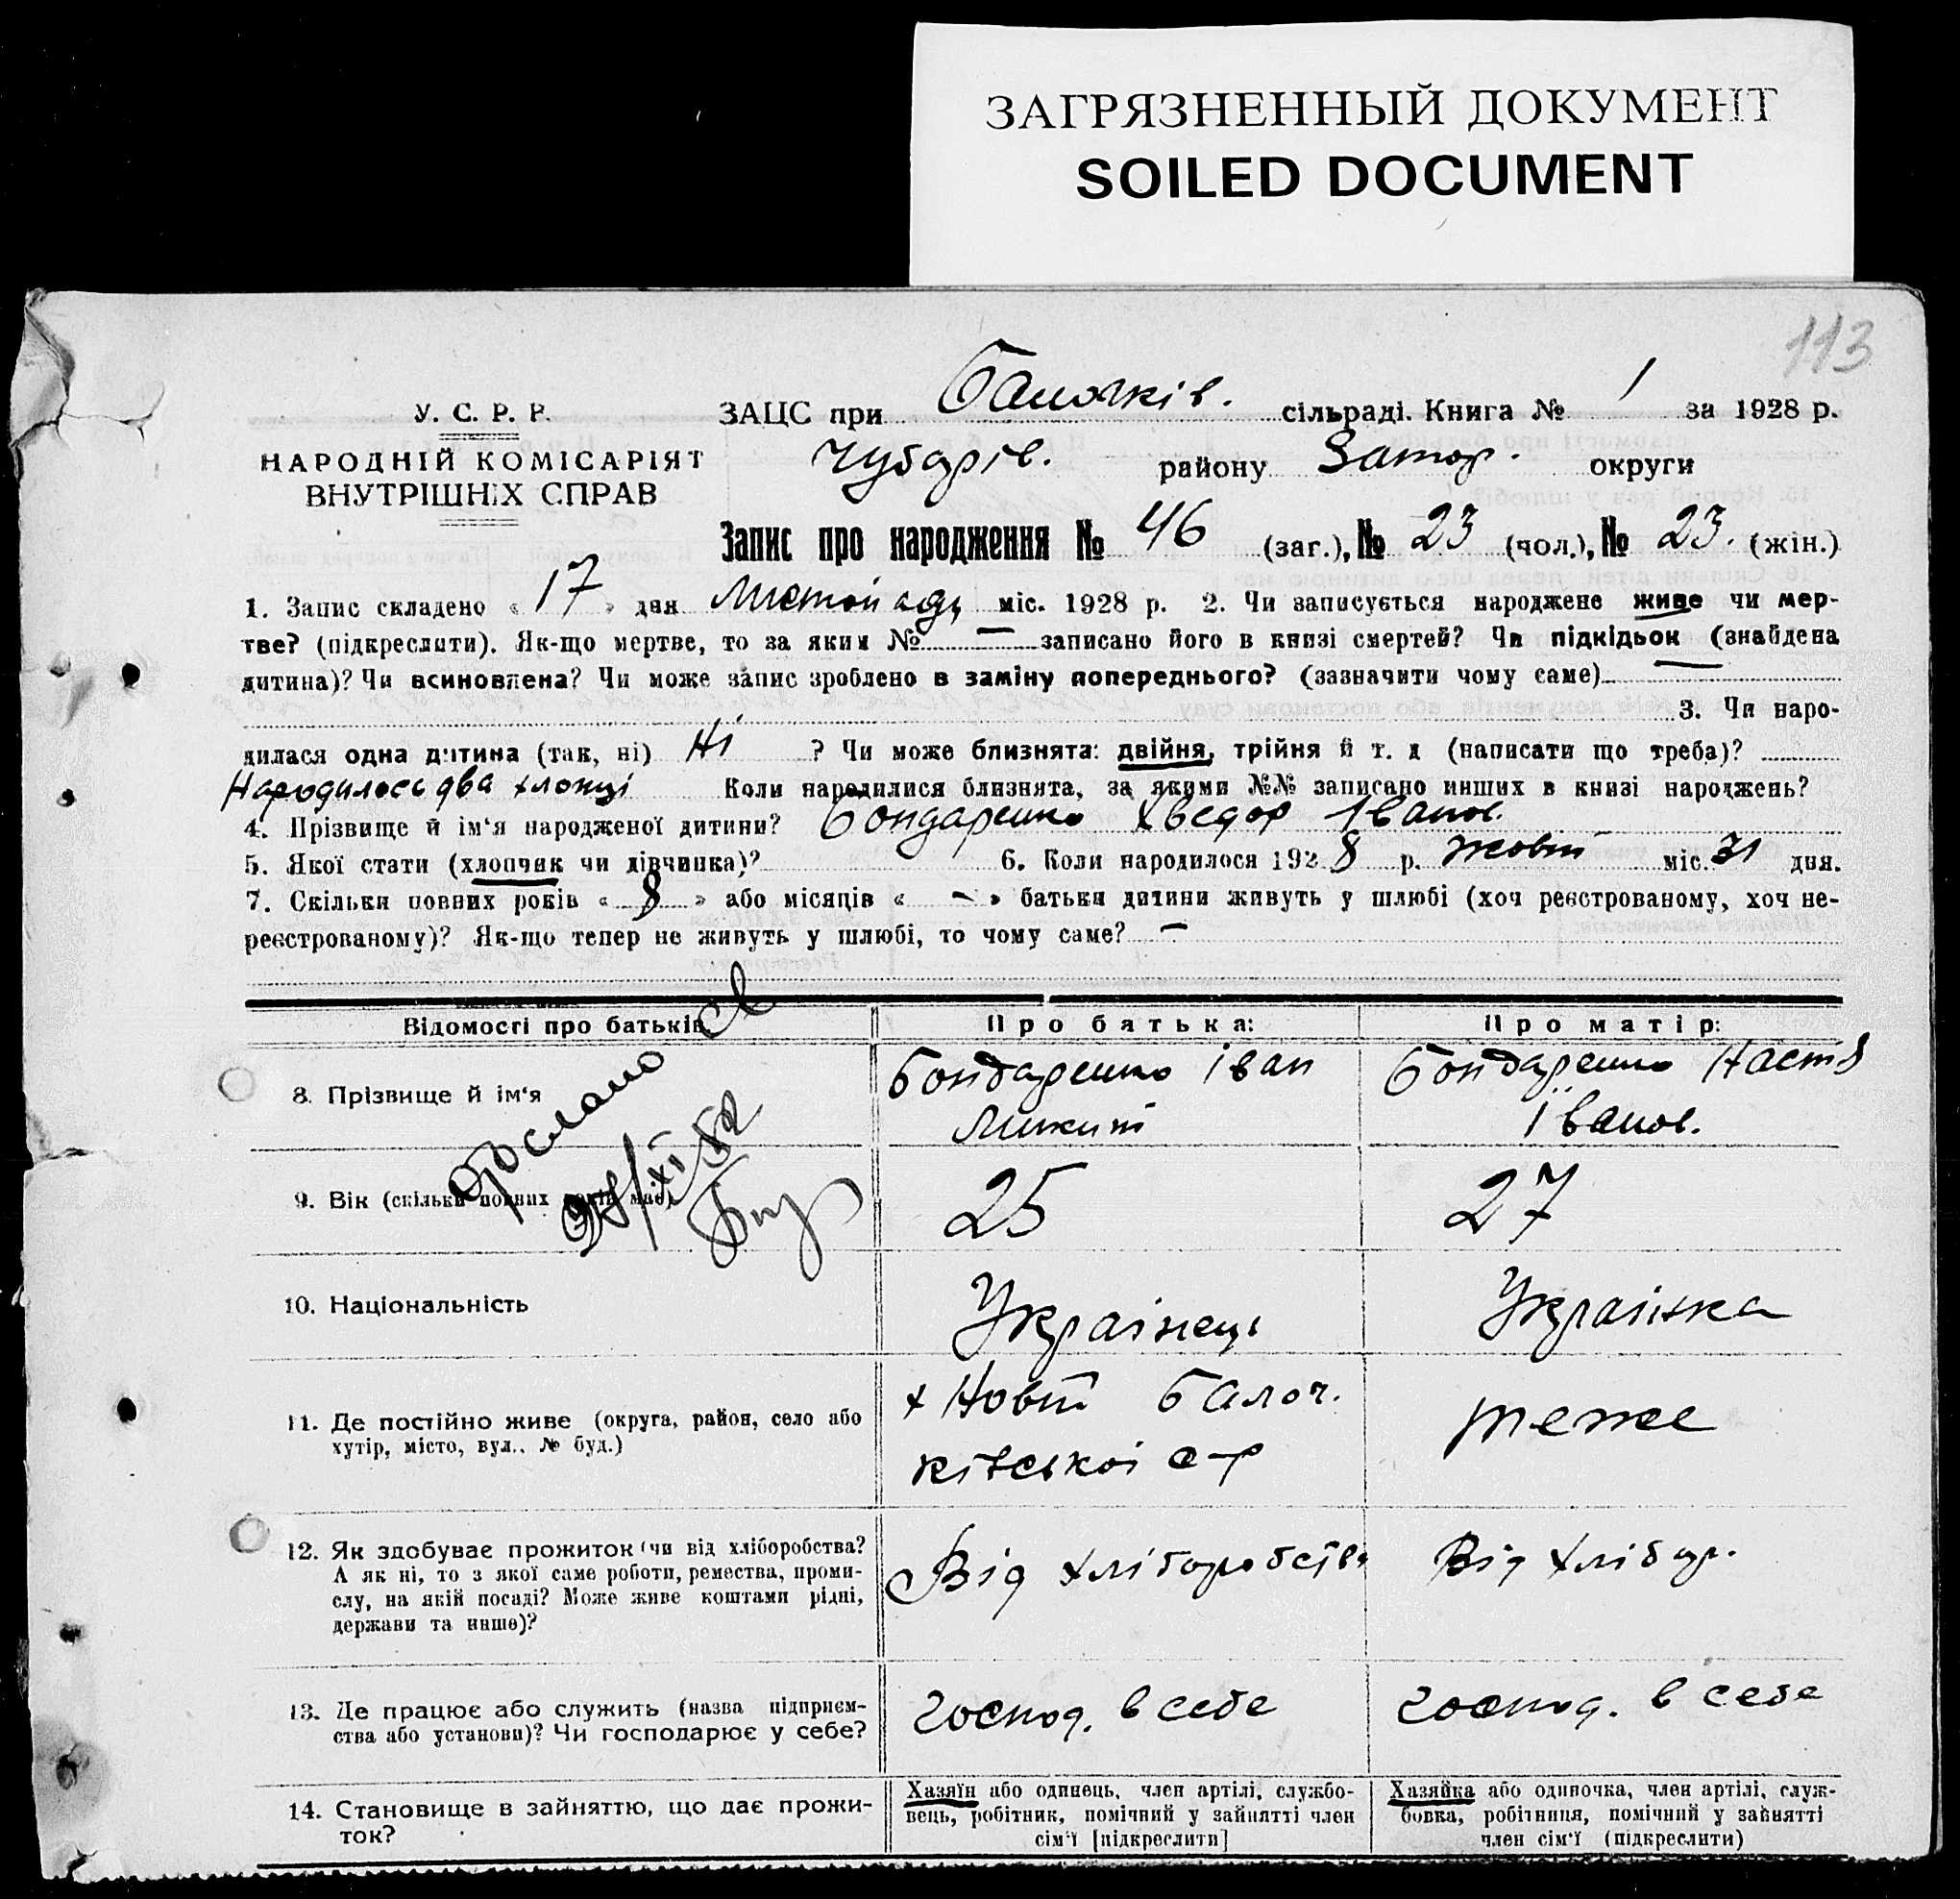 ЗАГРЯЗНЕННЫЙ ДОКУМЕНТ
SOILED DOCUMENT
113
У. С. Р. Р.
НАРОДНІЙ КОМІСАРІЯТ
ВНУТРІШНІХ СПРАВ
ЗАЦС при Балочків. сільраді. Книга № 1 за 1928 р.
Чубарів. району Запор. округи
Запис про народження № 46 (заг.), № 23 (чол.), № 23. (жін.)
1. Запис складено « 17 » дня Листопаду міс. 1928 р. 2. Чи записується народжене живе чи мер-
тве? (підкреслити). Як-що мертве, то за яким № — записано його в книзі смертей? Чи підкідьок (знайдена
дитина)? Чи всиновлена? Чи може запис зроблено в заміну попереднього? (зазначити чому саме) —
3. Чи наро-
дилася одна дитина (так, ні) Ні ? Чи може близнята: двійня, трійня й т. д (написати що треба)?
Народилось два хлопці Коли народилися близнята, за якими №№ записано инших в книзі народжень?
4. Прізвище й ім'я народженої дитини? Бондаренко Хведор Іванов.
5. Якої стати (хлопчик чи дівчинка)? 6. Коли народилося 1928 р. Жовт міс. 31 дня.
7. Скільки повних років « 8 » або місяців « - » батьки дитини живуть у шлюбі (хоч реєстрованому, хоч не-
реєстрованому)? Як-що тепер не живуть у шлюбі, то чому саме? —
Відомості про батьків
Про батька:
Про матір:
8. Прізвище й ім'я
Бондаренко Іван
Микит
Бондаренко Настя
Іванов.
9. Вік (скільки повних років має)
25
27
10. Національність
Українець
Українка
11. Де постійно живе (округа, район, село або
хутір, місто, вул., № буд.)
х Новый Балоч.
ківської с-р
теже
12. Як здобуває прожиток (чи від хліборобства?
А як ні, то з якої саме роботи, ремества, проми-
слу, на якій посаді? Може живе коштами рідні,
держави та инше)?
Від хліборобства
Від хлібор.
13. Де працює або служить (назва підприєм-
ства або установи)? Чи господарює у себе?
господ. в себе
господ. в себе
14. Становище в зайняттю, що дає прожи-
ток?
Хазяїн або одинець, член артілі, службо-
вець, робітник, помічний у зайнятті член
сім'ї [підкреслити]
Хазяйка або одиночка, член артілі, служ-
бовка, робітниця, помічний у зайнятті
член сім'ї (підкреслити)